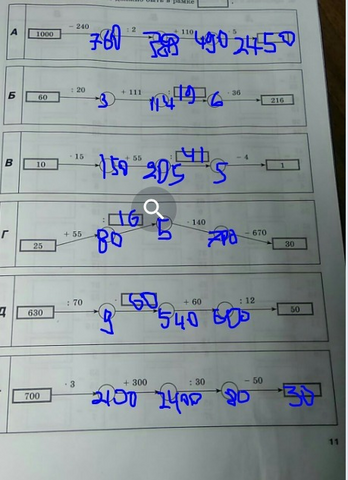 быть в рамке
А 1000 − 240 760 : 2 380 + 110 490 5 2450
Б 60 : 20 3 + 111 114 : 19 6 · 36 216
В 10 · 15 150 + 55 205 : 41 5 − 4 1
Г 25 + 55 80 : 16 5 · 140 700 − 670 30
Д 630 : 70 9 · 60 540 + 60 600 : 12 50
700 · 3 2100 + 300 2400 : 30 80 − 50 30
11